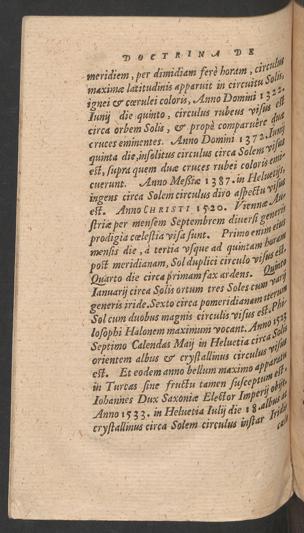 DOCTRINA DE
meridiem, per dimidiam ferè horam, circulus
maximæ latitudinis apparuit in circuitu Solis,
ignei & cœrulei coloris, Anno Domini 1322.
Iunij die quinto, circulus rubeus visus est
circa orbem Solis, & propè comparuêre duæ
cruces eminentes. Anno Domini 1372. Iunij
quinta die, insolitus circulus circa Solem visus
est, supra quem duæ cruces rubei coloris emi-
cuerunt. Anno Messiæ 1387. in Heluetijs,
ingens circa Solem circulus diro aspectu visus
est. Anno CHRISTI 1520. Viennæ Au-
striæ per mensem Septembrem diuersi generis
prodigia cœlestia visa sunt. Primo enim eius
mensis die, à tertia vsque ad quintam horam
post meridianam, Sol duplici circulo visus est.
Quarto die circa primam fax ardens. Quinto
Ianuarij circa Solis ortum tres Soles cum varij
generis iride. Sexto circa pomeridianam iterum
Sol cum duobus magnis circulis visus est, Phi-
losophi Halonem maximum vocant. Anno 1523
Septimo Calendas Maij in Heluetia circa Solis
orientem albus & crystallinus circulus visus
est. Et eodem anno bellum maximo apparatu
in Turcas sine fructu tamen susceptum est.
Iohannes Dux Saxoniæ Elector Imperij obijt.
Anno 1533. in Heluetia Iulij die 18. albus ac
crystallinus circa Solem circulus instar Iridis